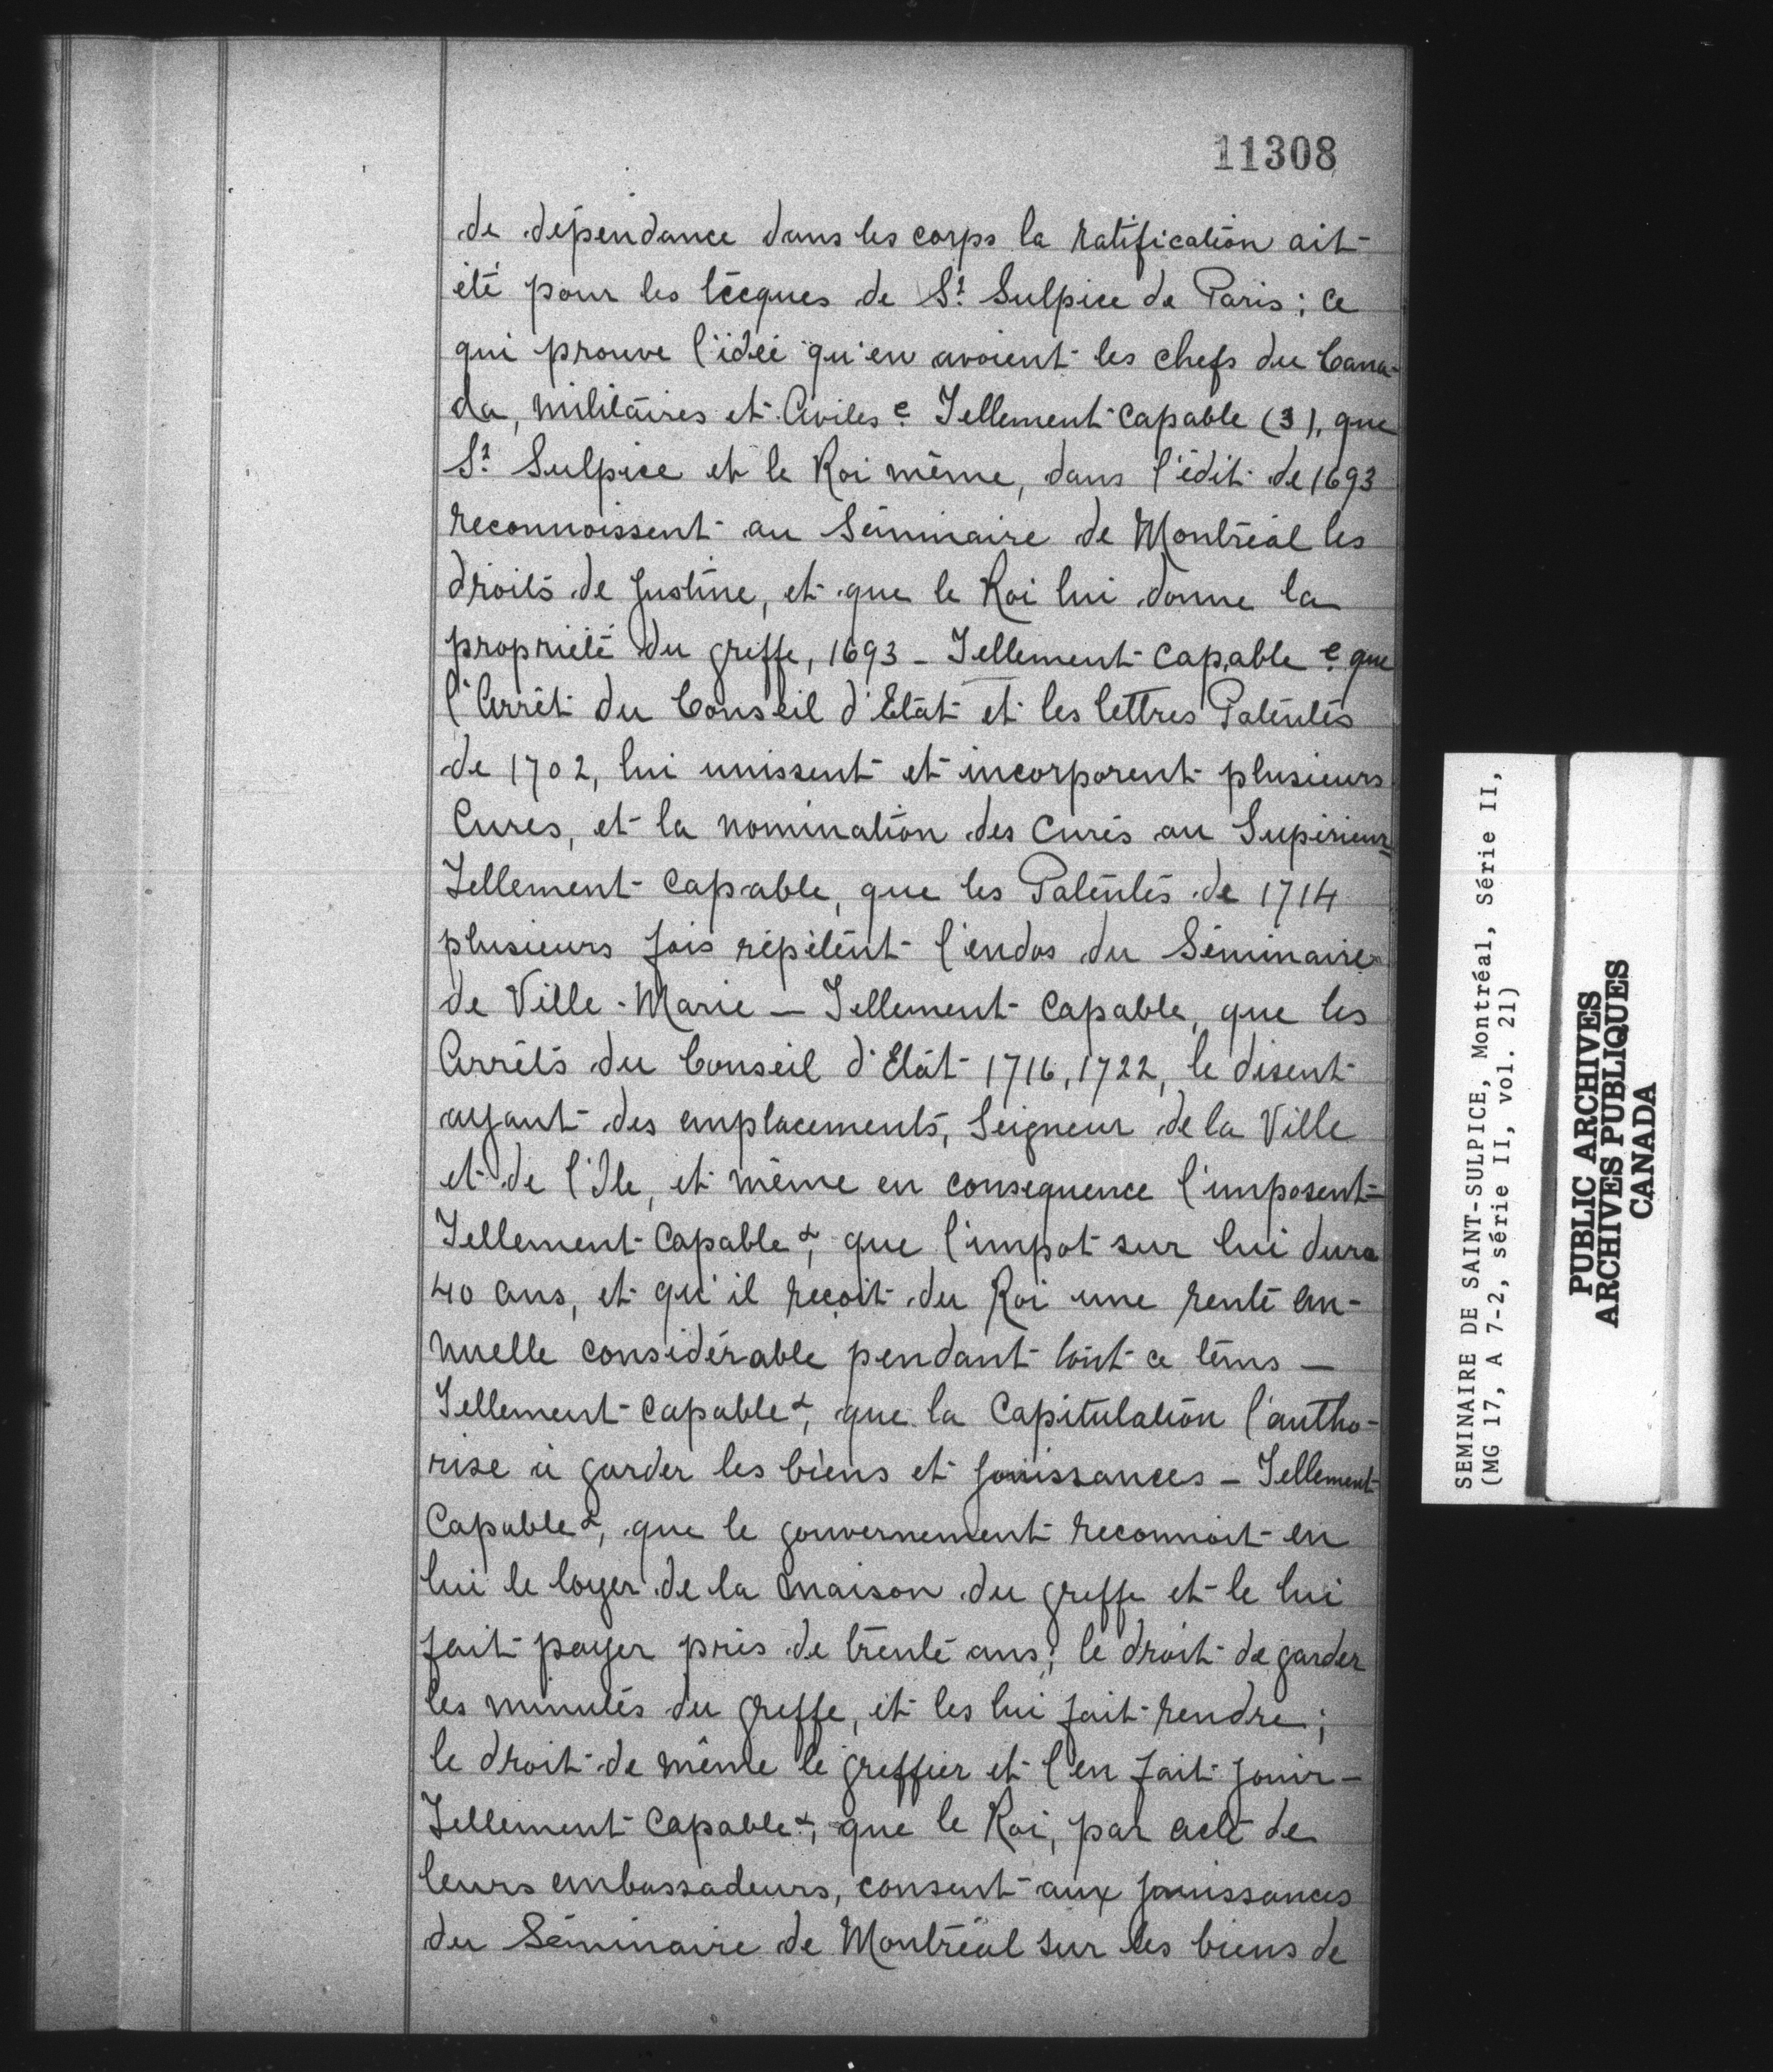 11308
de dépendance dans les corps la ratification ait
été pour les lècques de St Sulpice de Paris; ce
qui prouve l'idée qu'en avoient les chefs du Cana-
da, militaires et Civiles &. Tellement capable (3), que
St Sulpice et le Roi même, dans l'édit de 1693
reconnoissent au Séminaire de Montréal les
droits de Justine, et que le Roi lui donne la
propriété du greffe, 1693 - Tellement capable &. que
l'Arrêt du Conseil d'Etat et les lettres Patentes
de 1702, lui unissent et incorporent plusieurs
Cures, et la nomination des Curés au Supérieur=
Tellement capable, que les Patentes de 1714
plusieurs fois répètent l'endos du Séminaire
de Ville-Marie — Tellement capable, que les
Arrêts du Conseil d'Etat 1716, 1722, le disent
ayant des emplacements, Seigneur de la Ville
et de l'Ile, et même en consequence l'imposent-
Tellement Capable &, que l'impot sur lui dura
40 ans, et qu'il reçoit du Roi une rente an-
nuelle considérable pendant tout ce tems —
Tellement capable &, que la Capitulation l'autho-
rise à garder les biens et jouissances - Tellement
Capable &, que le gouvernement reconnoit en
lui le loyer de la maison du greffe et le lui
fait payer près de trente ans; le droit de garder
les minutes du greffe, et les lui fait rendre;
le droit de même le greffier et l'en fait jouir -
Tellement Capable &, que le Roi, par acte de
leurs embassadeurs, consent aux jouissances
du Séminaire de Montréal sur les biens de
SEMINAIRE DE SAINT-SULPICE, Montréal, Série II,
(MG 17, A 7-2, série II, vol. 21)
PUBLIC ARCHIVES
ARCHIVES PUBLIQUES
CANADA